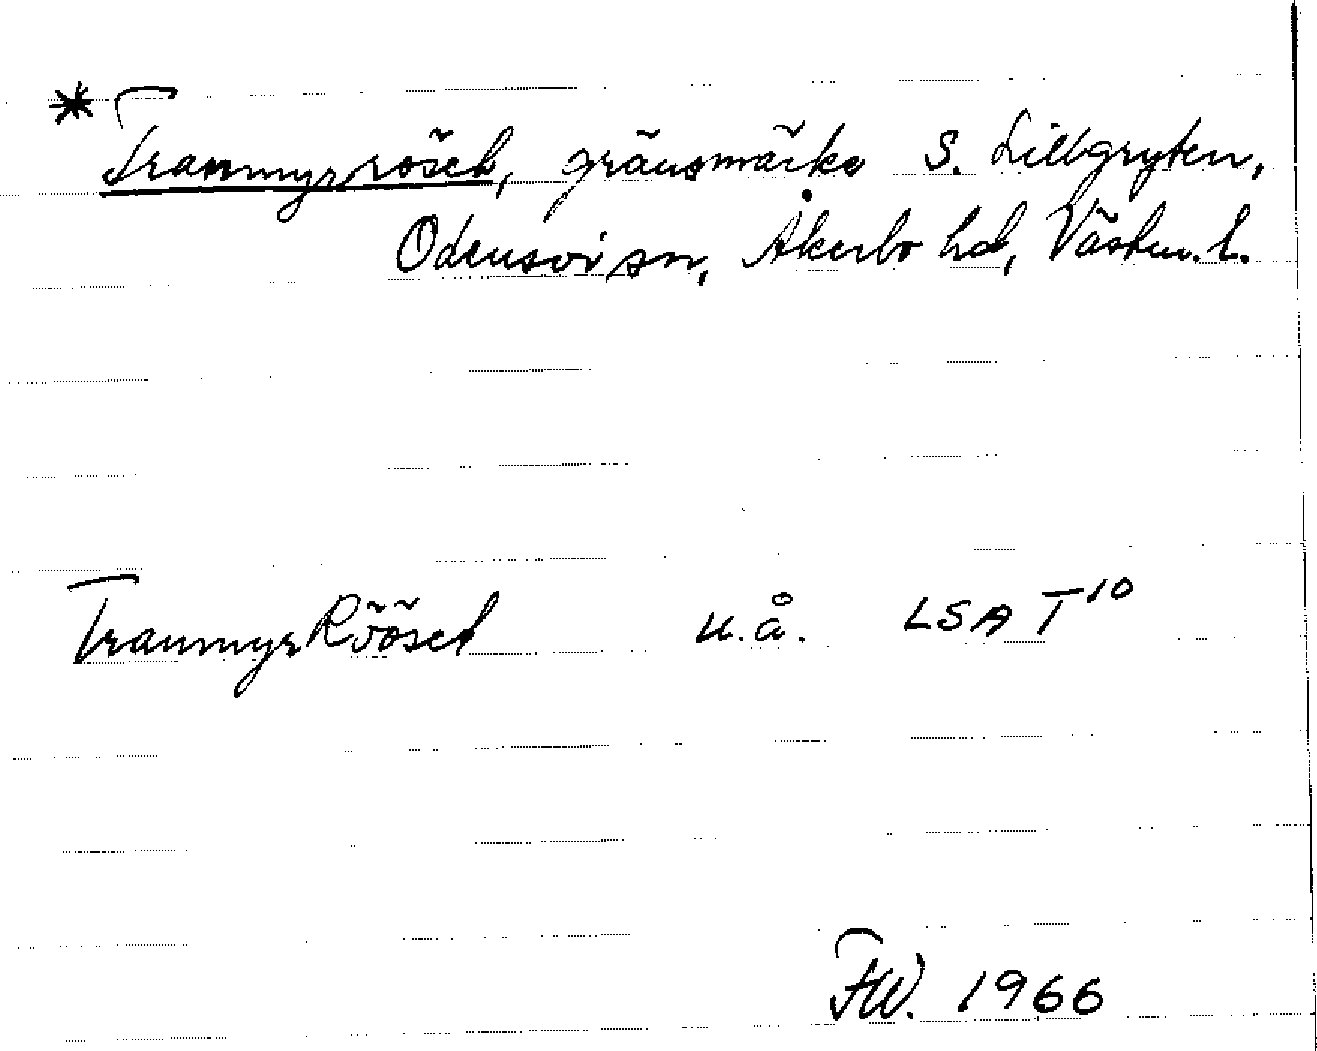 * Tranmyrröset, gränsmärke S. Lillgryten,
Odensvi sn, Åkerbo hd, Västm. l.
TranmyrRööset u.å. LSA T¹⁰
FW. 1966